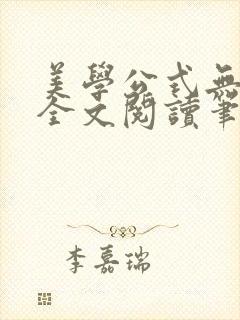 美學公式無
全文閱讀筆
李嘉瑞